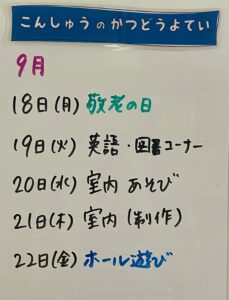 こんしゅうのかつどうよてい
9月
18日(月) 敬老の日
19日(火) 英語・図書コーナー
20日(水) 室内あそび
21日(木) 室内(制作)
22日(金) ホール遊び